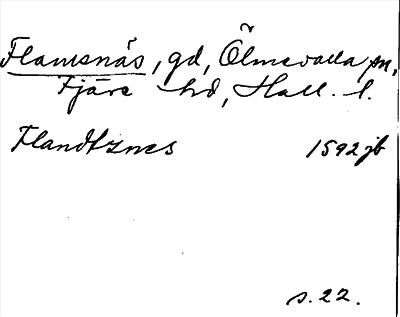 Flamsnäs, gd, Ölmevalla sn,
Fjäre hd, Hall. l.
Flandtznes 1592 jb
s. 22.